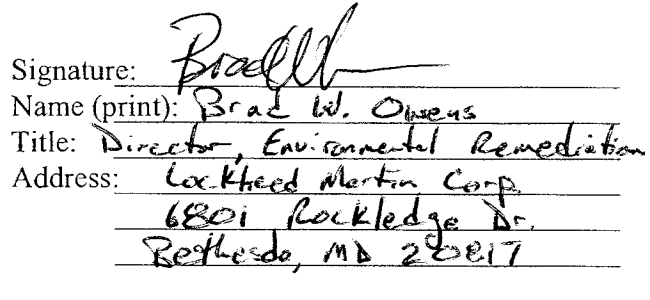 Signature: Brad W
Name (print): Brad W. Owens
Title: Director, Environmental Remediation
Address: Lockheed Martin Corp.
6801 Rockledge Dr.
Bethesda, MD 20817